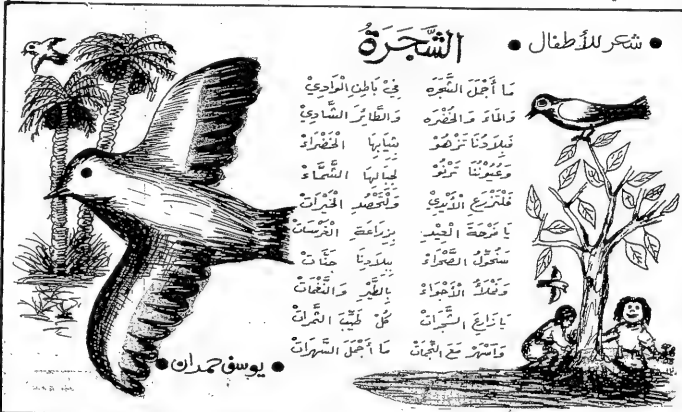 ● شعر للأطفال ●
الشَّجَرَةُ
مَا أَجْمَلَ الشَّجَرَه فِيْ بَاطِنِ الْوَادِيْ
وَالمَاءَ وَالخُضْرَه وَالطَّائِرَ الشَّادِيْ
فَبِلَادُنَا تَزْهُوْ بِثِيَابِهَا الْخَضْرَاءْ
وَعُيُوْنُنَا تَرْنُوْ لِجِبَالِهَا الشَّمَّاءْ
فَلْتَزْرَعِ الأَيْدِيْ وَلْتَحْصُدِ الْخَيْرَاتْ
يَا فَرْحَةَ الْعِيْدِ بِزِرَاعَةِ الْغَرْسَاتْ
سَنُحَوِّلُ الصَّحْرَاءْ بِبِلَادِنَا جَنَّاتْ
وَنَمْلَأُ الأَجْوَاءْ بِالطَّيْرِ وَالنَّغَمَاتْ
يَا زَارِعَ الشَّجَرَاتْ كُلْ طَيِّبَ الثَّمَرَاتْ
وَاسْهَرْ مَعَ النَّجْمَاتْ مَا أَجْمَلَ السَّهَرَاتْ
● يوسف حمدان ●